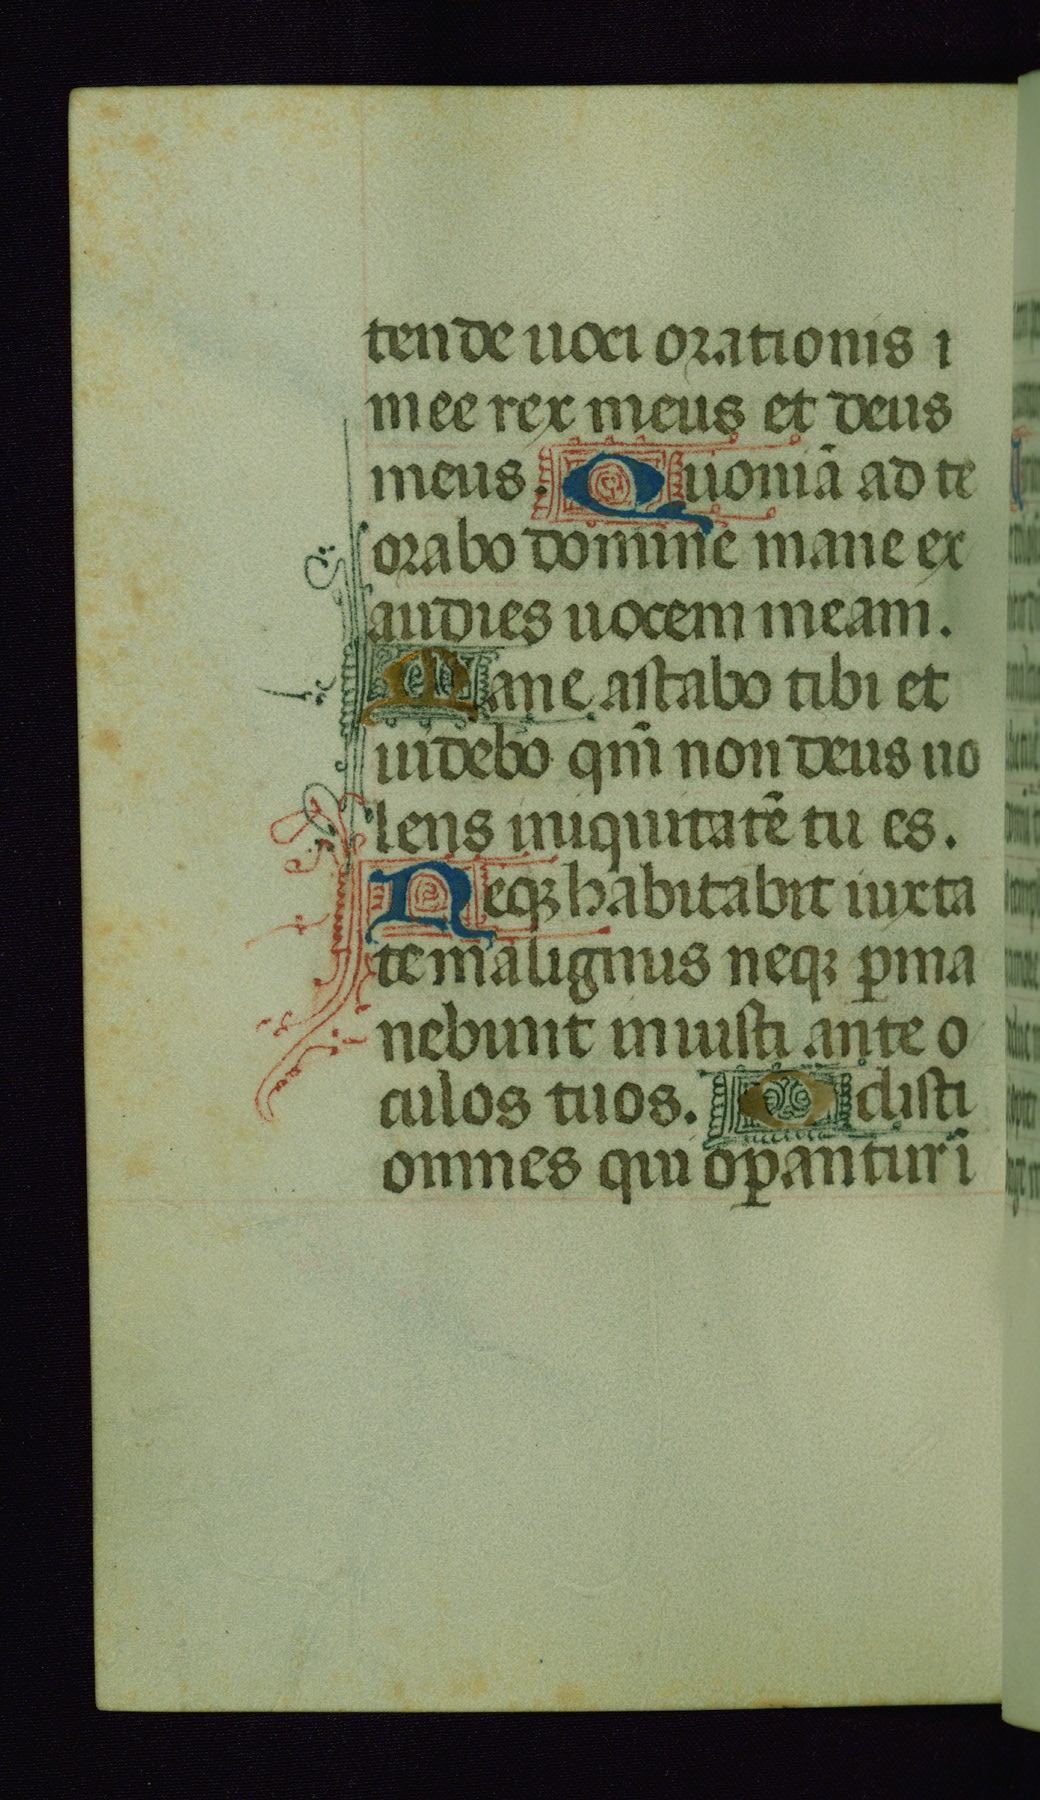 tende uoci orationis i
mee rex meus et deus
meus. Quoniã ad te
orabo domine mane ex
audies uocem meam.
Mane astabo tibi et
uidebo qm̃ non deus uo
lens iniquitatẽ tu es.
Neqꝫ habitabit iuxta
te malignus neqꝫ ꝑma
nebunt iniusti ante o
culos tuos. Odisti
omnes qui oꝑantur ĩ